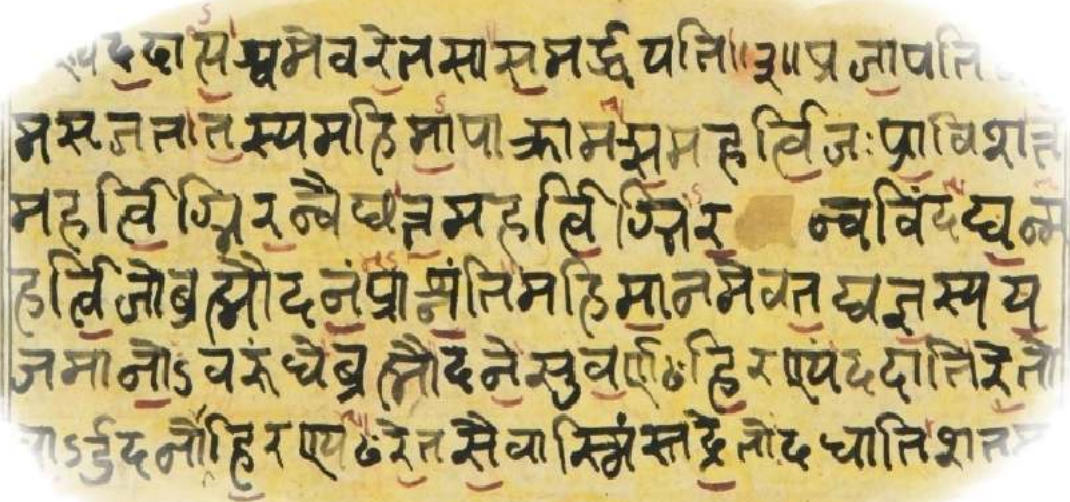 ददात्यश्वमेवरेतसासमर्द्धयति॥३॥प्रजापति
मसृजततस्यमहिमापाक्रामत्समहर्त्विजःप्राविशत्तं
महर्त्विग्भिरन्वैछत्तंमहर्त्विग्भिरन्वविंदद्यन्म
हर्त्विजोब्रह्मौदनंप्राश्नंतिमहिमानमेवतद्यज्ञस्यय
जमानोऽवरुंधेब्रह्मौदनेसुवर्णᳪहिरण्यंददातिरेतो
हिरण्यᳪरेतसैवास्मिंस्तद्रेतोदधातिशतम